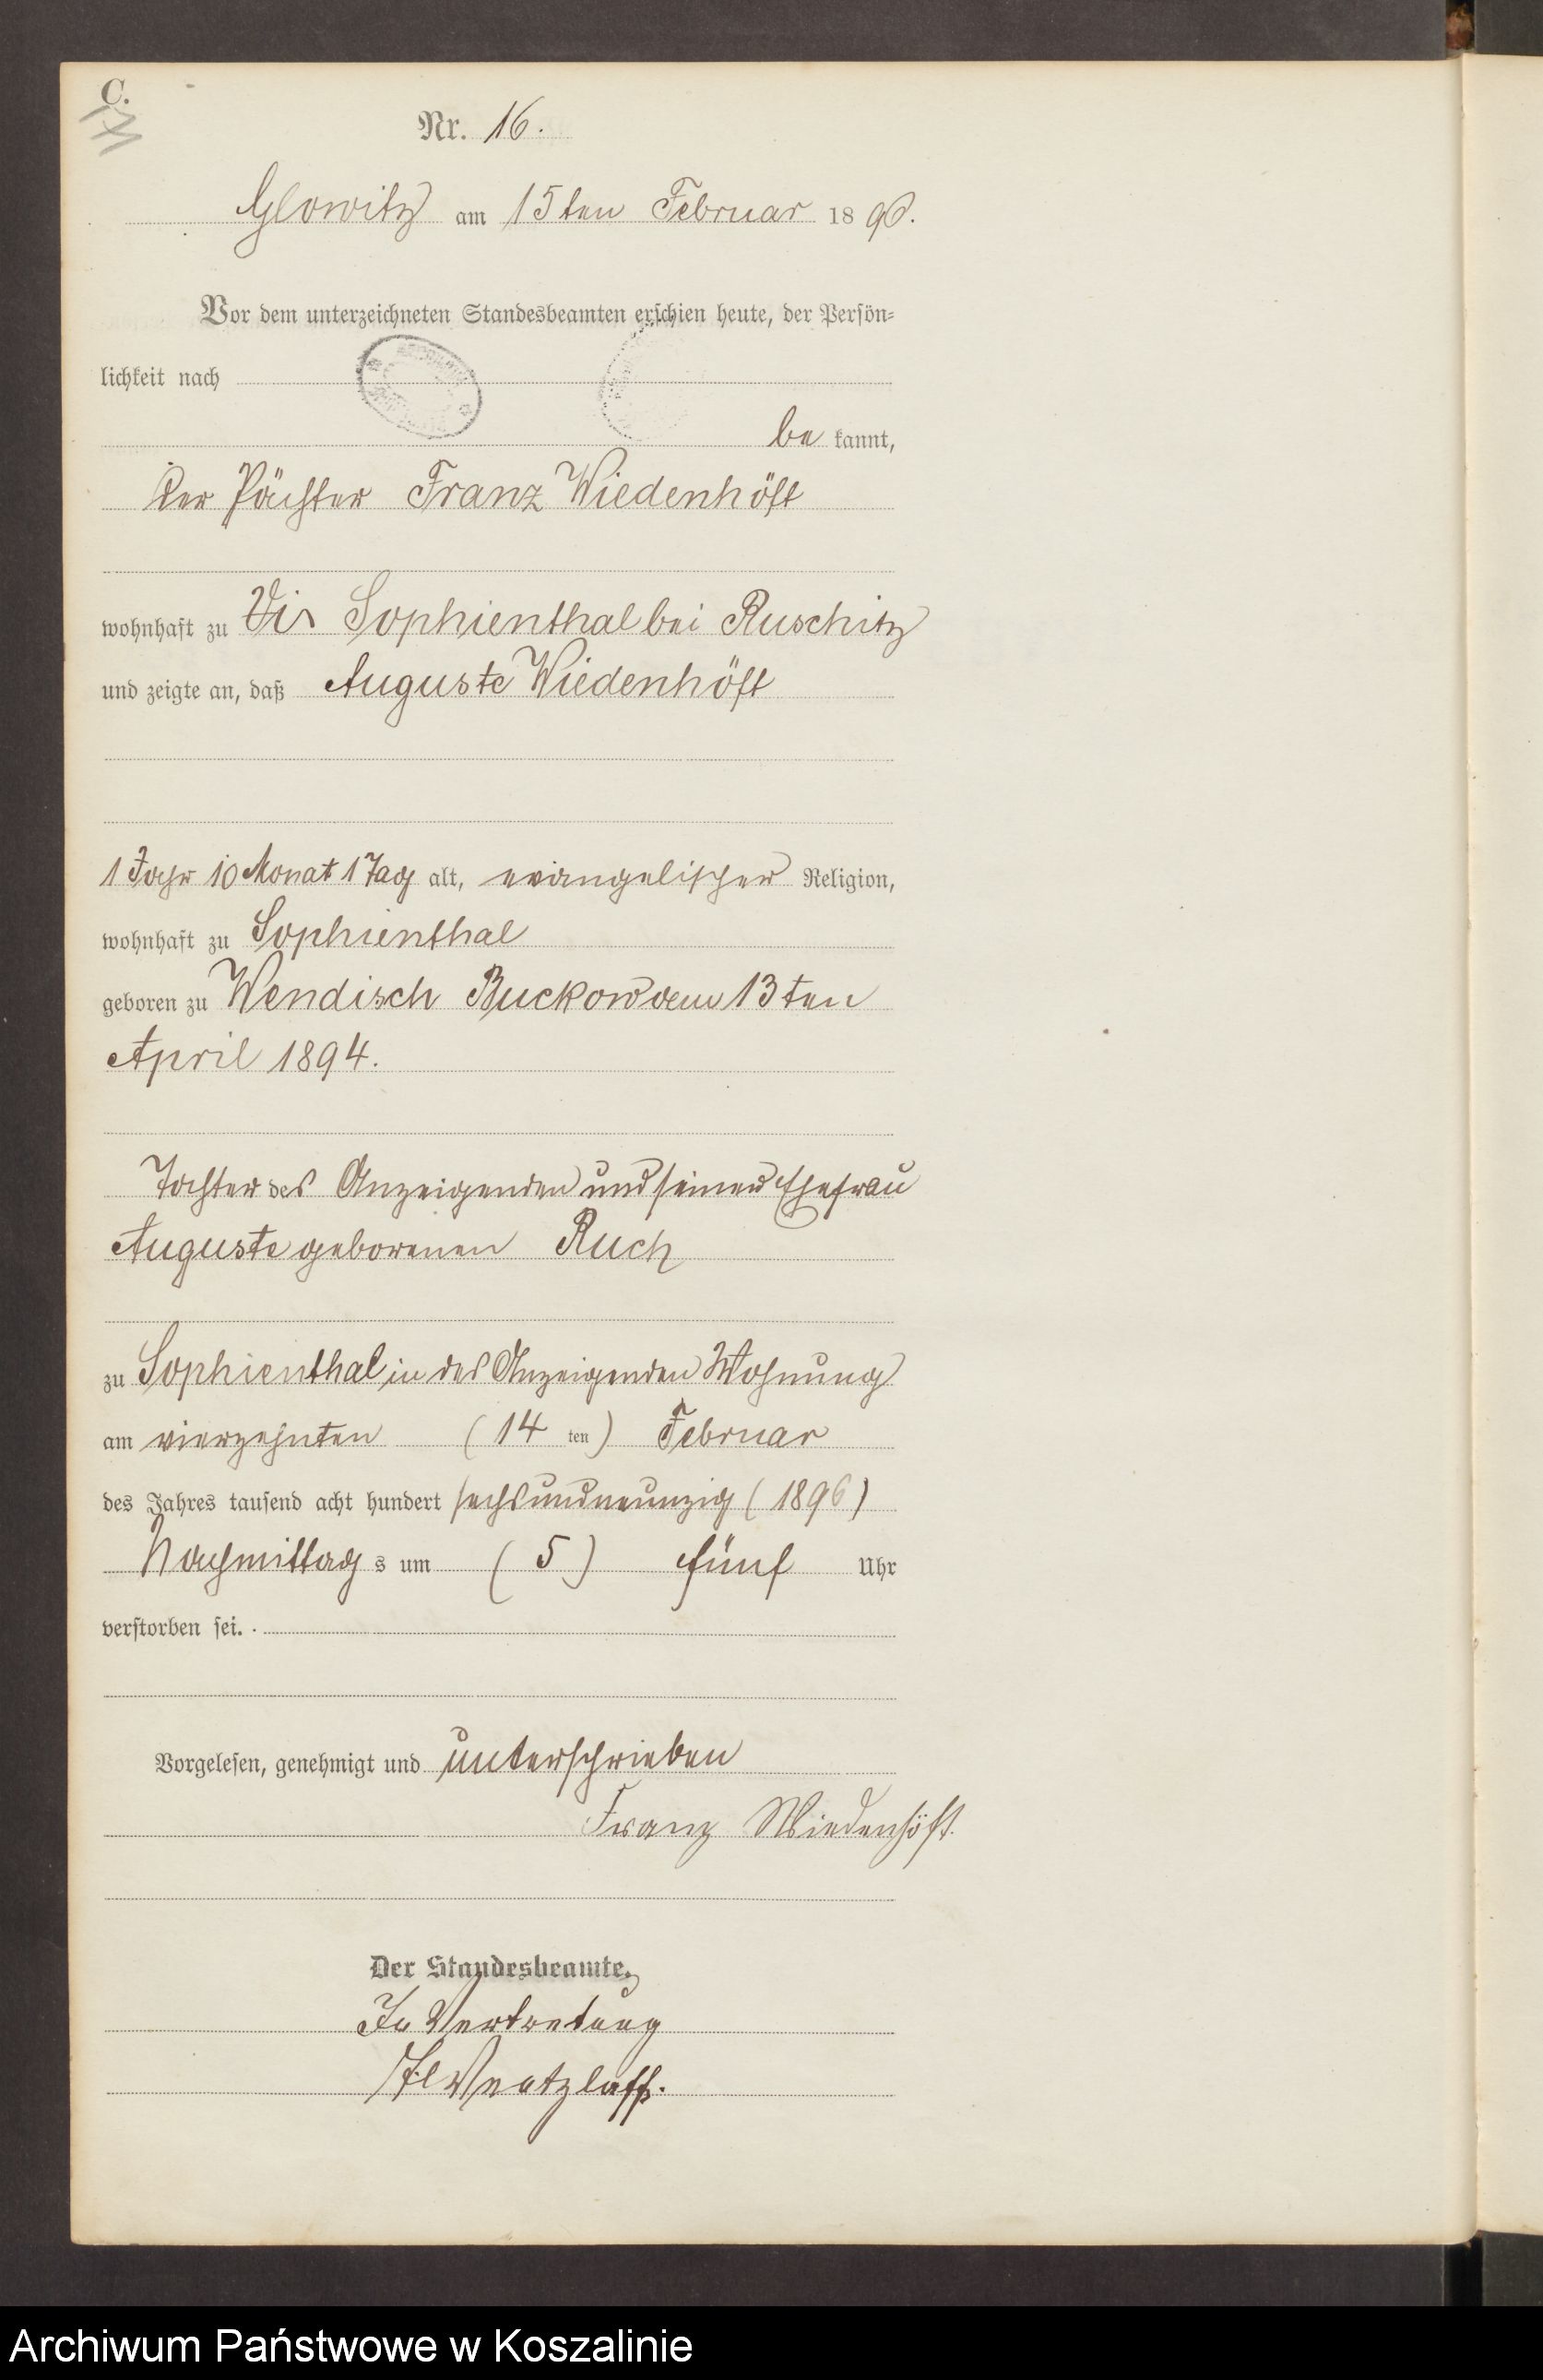 C.
Nr. 16.
Glowitz am 15ten Februar 1896.
Vor dem unterzeichneten Standesbeamten erschien heute, der Persön-
lichkeit nach
be kannt,
der Pächter Franz Wiedenhöft
wohnhaft zu Sophienthal bei Ruschitz
und zeigte an, daß Auguste Wiedenhöft
1 Jahr 10 Monat 1 Tag alt, evangelischer Religion,
wohnhaft zu Sophienthal
geboren zu Wendisch Buckow am 13ten
April 1894.
Tochter des Anzeigenden und seiner Ehefrau
Auguste geborenen Ruch
zu Sophienthal in des Anzeigenden Wohnung
am vierzehnten (14 ten) Februar
des Jahres tausend acht hundert sechsundneunzig (1896)
Nachmittag s um (5) fünf Uhr
verstorben sei.
Vorgelesen, genehmigt und unterschrieben
Franz Wiedenhöft.
Der Standesbeamte.
In Vertretung
Archiwum Państwowe w Koszalinie